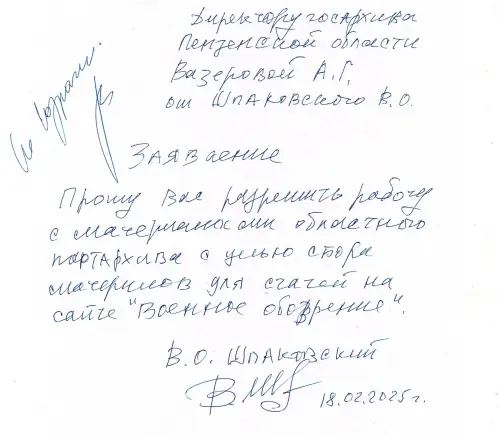 Директору госархива
Пензенской области
Вазеровой А.Г,
от Шпаковского В.О.
Не возраж.
Заявление
Прошу Вас разрешить работу
с материалами областного
партархива с целью сбора
материлов для статей на
сайте "Военное обозрение".
В.О. Шпаковский
18.02.2025 г.